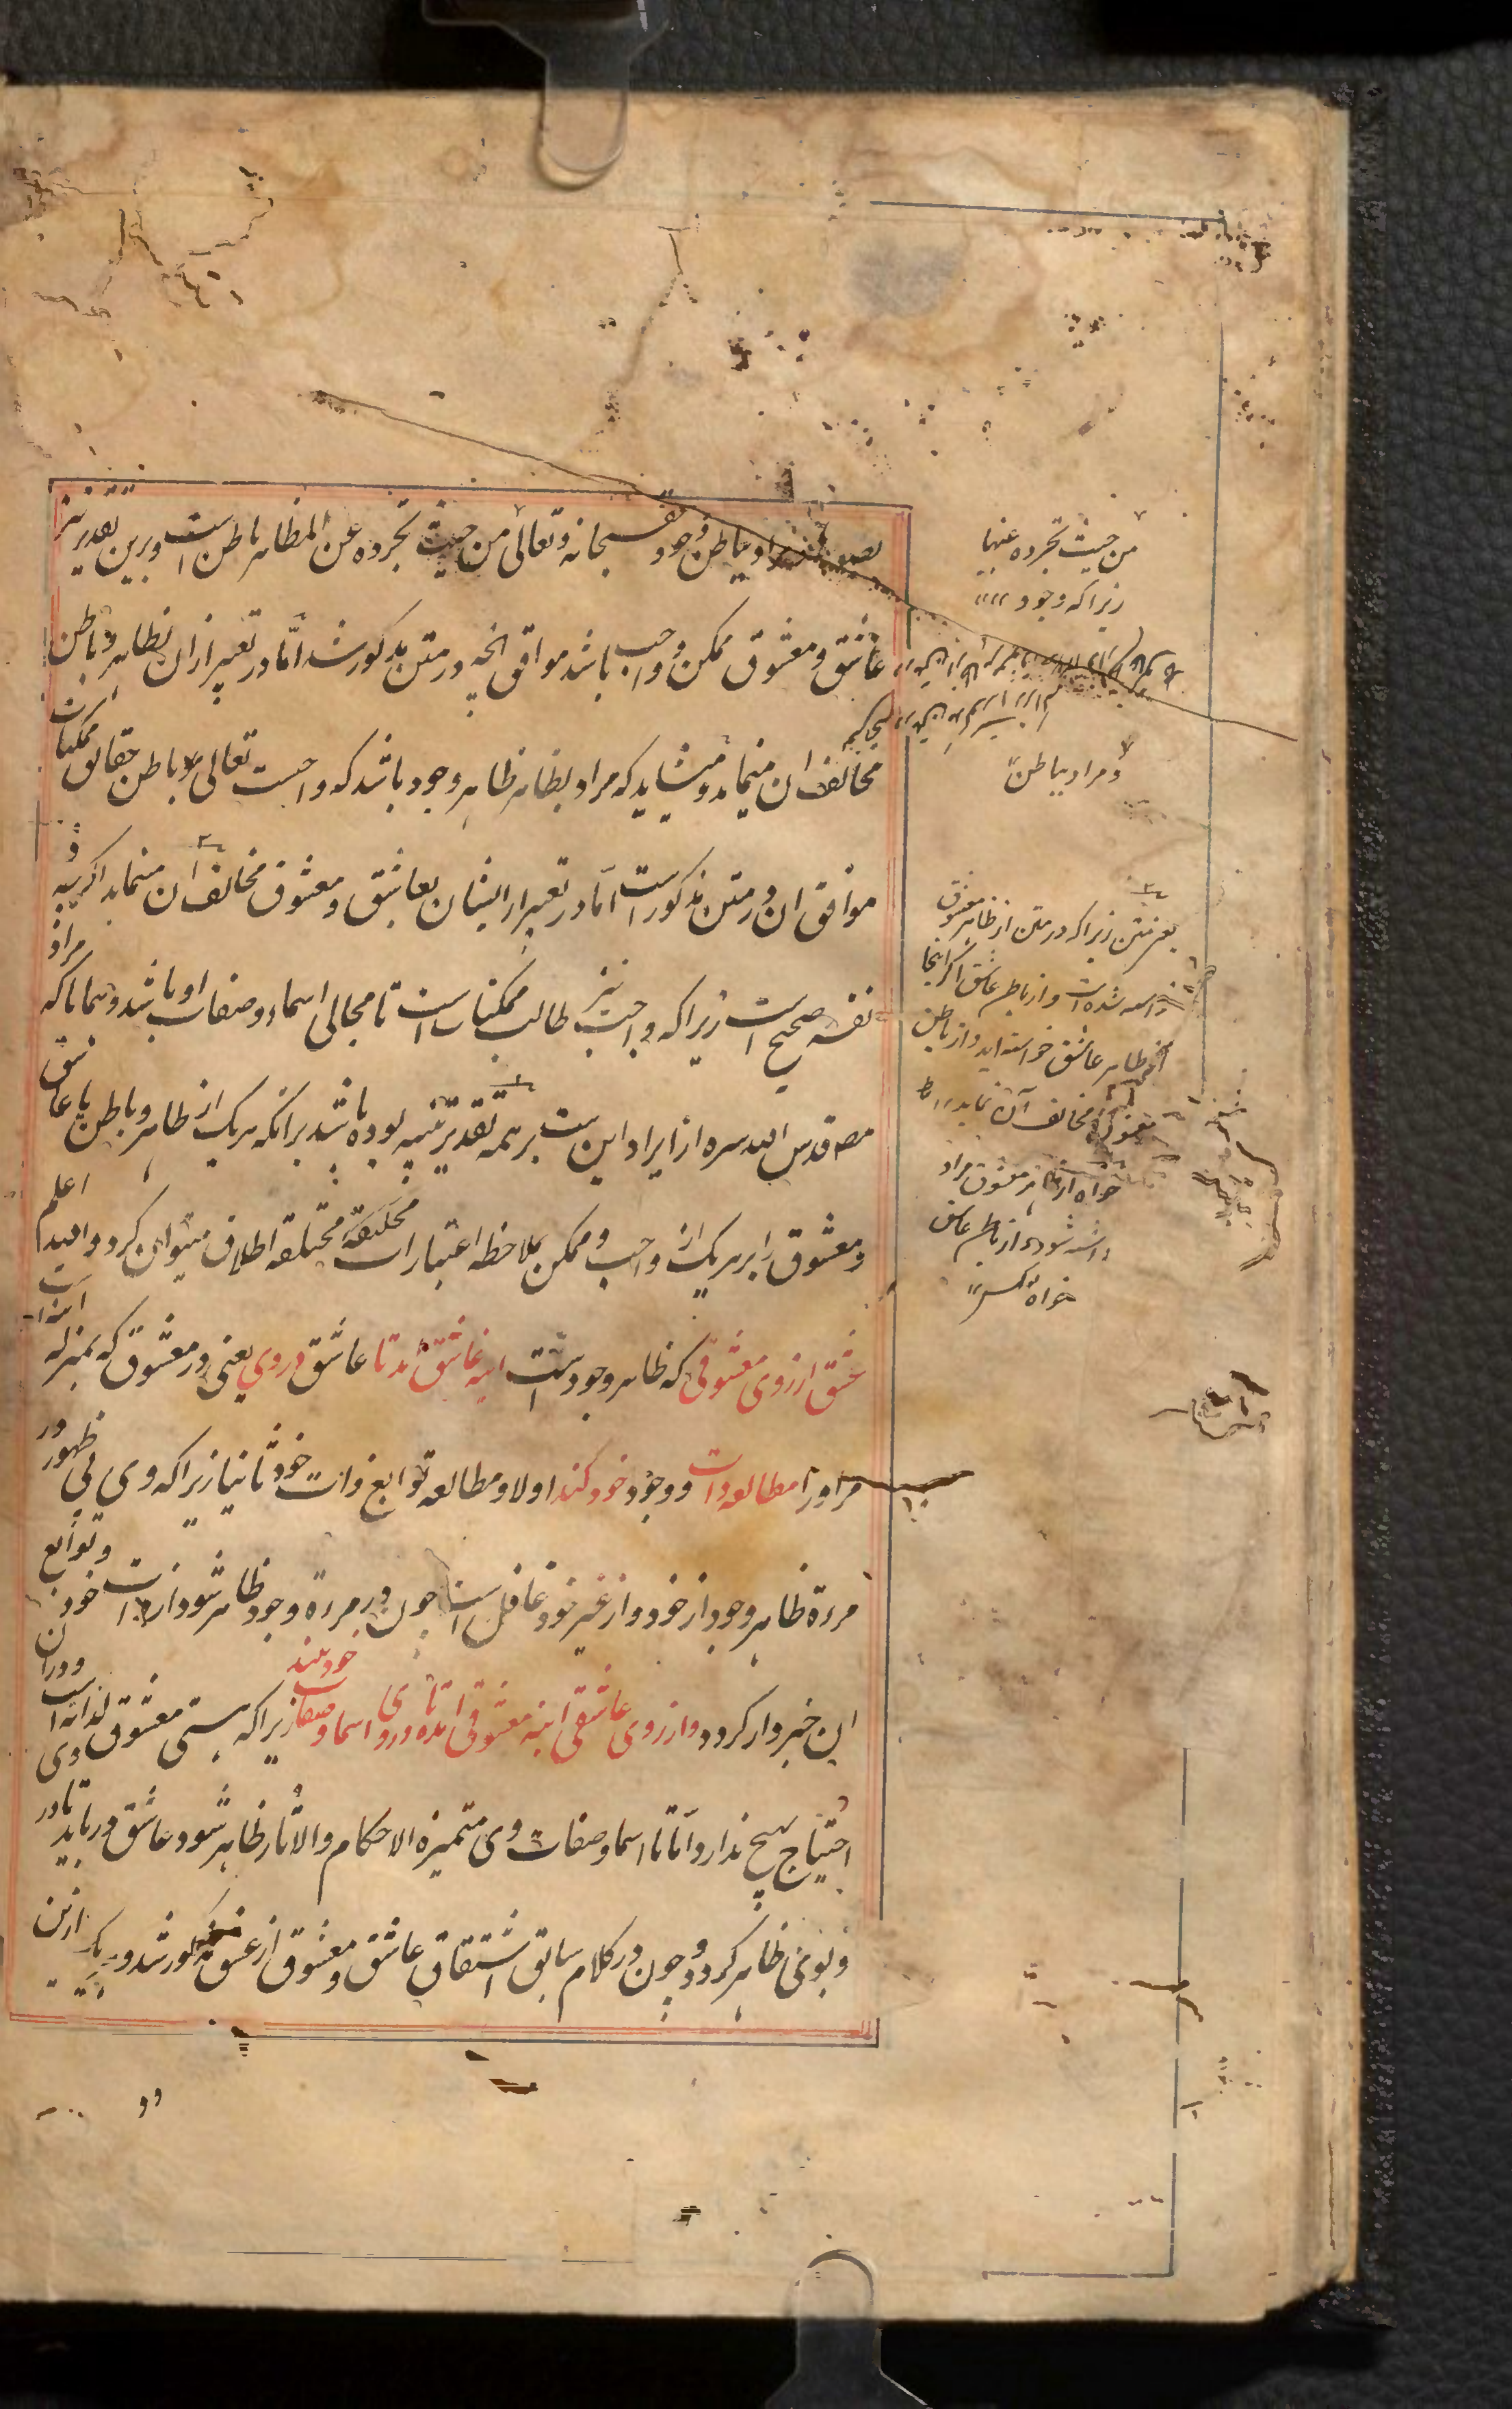 مراد بباطن وجود حق سبحانه و تعالی من حیث تجرده عن المظاهر باطن است و برین تقدیر نیز
عاشق و معشوق ممکن و واجب باشد موافق انچه در متن مذکور شد امّا در تعبیر از ان بظاهر و باطن
مخالف ان مینماید و میشاید که مراد بظاهر ظاهر وجود باشد که واجبست تعالی و بباطن حقایق ممکنات
موافق ان در متن مذکور است امّا در تعبیر از ایشان بعاشق و معشوق مخالف ان مینماید اگرچه فی
نفسه صحیح است زیرا که واجب نیز طالب ممکنات است تا مجالی اسماء و صفات او باشد و همانا که مراد
مصـ قدس الله سره از ایراد این بیت بر همه تقدیر تنبیه بوده باشد برانکه هر یک از ظاهر و باطن یا عاشق
و معشوق را بر هر یک از واجب و ممکن بملاحظه اعتبارات مختلفه اطلاق میتوان کرد والله اعلم
عشق از روی معشوقی که ظاهر وجود است اینه عاشق امد تا عاشق در وی یعنی در معشوق که بمنزله اینه است
مر او را مطالعه ذات و وجود خود کند اولا و مطالعه توابع ذات خود ثانیا زیرا که وی بی ظهور در
مرءة ظاهر وجود از خود و از غیر خود غافل است چون در مرءة وجود ظاهر شود از ذات خود و توابع
ان خبردار کردد و از روی عاشقی اینه معشوقی امد تا در وی اسما و صفات خود بیند زیرا که هستی معشوق لذاته است و در ان
احتیاج بهیچ ندارد امّا تا اسما و صفات وی متمیزة الاحکام والاثار ظاهر شود عاشق در باید تا در وی
و بوی ظاهر کردد و چون در کلام سابق اشتقاق عاشق و معشوق از عشق مذکور شد و هر یک ازین
من حیث تجرده عنها
زیرا که وجود
و مراد بباطن
یعنی متن زیرا که در متن از ظاهر معشوق
خواسته شده است و از باطن عاشق اگر اینجا
از ظاهر عاشق خواسته اید و از باطن
معشوق مخالف آن نماید
خواه از ظاهر معشوق مراد
داشته شود و از باطن عاشق
خواه عکس